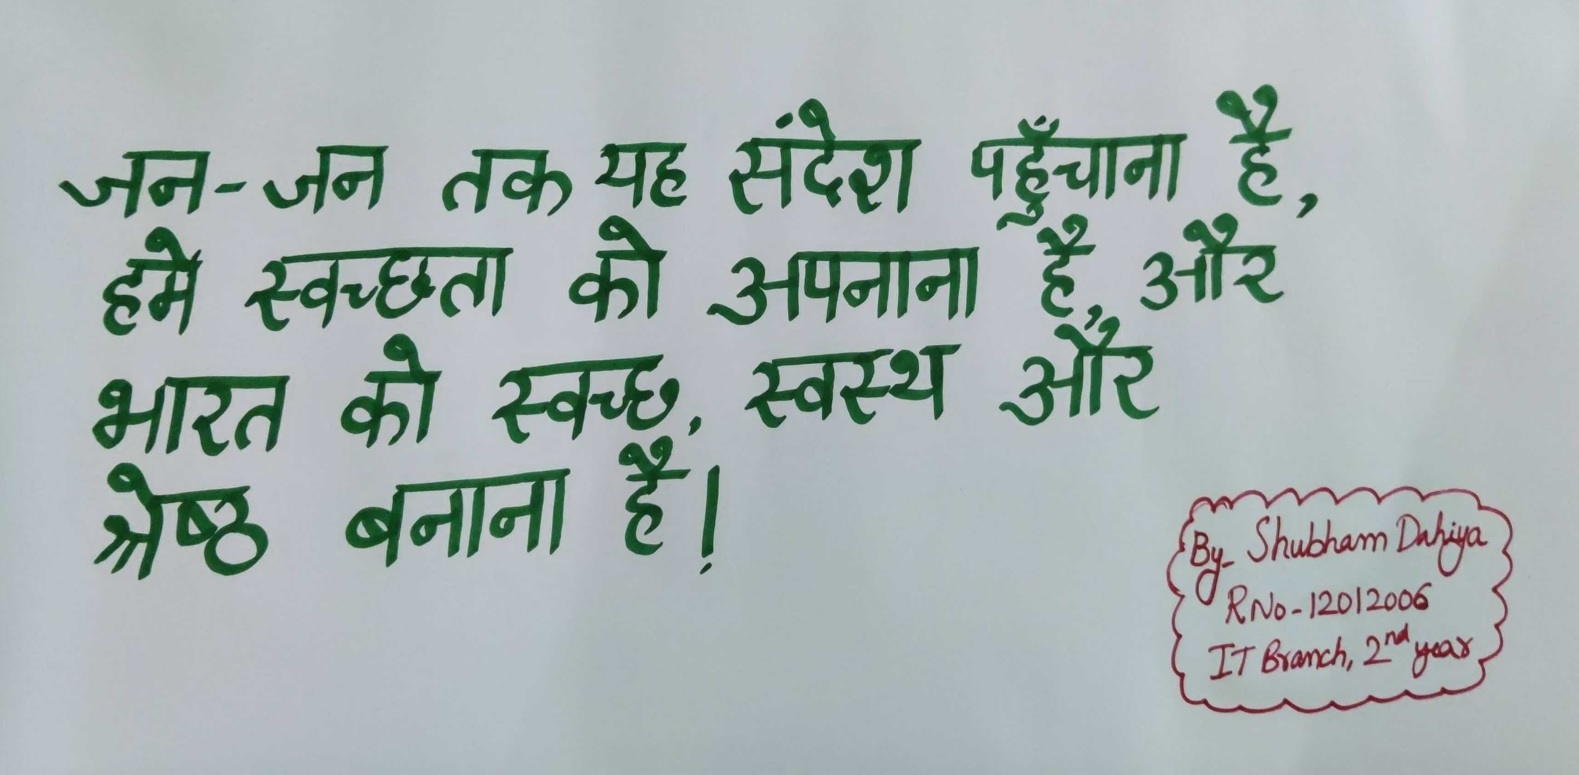 जन-जन तक यह संदेश पहुँचाना है,
हमे स्वच्छता को अपनाना है, और
भारत को स्वच्छ, स्वस्थ और
श्रेष्ठ बनाना है!
By- Shubham Dahiya
RNo-12012006
IT Branch, 2nd year